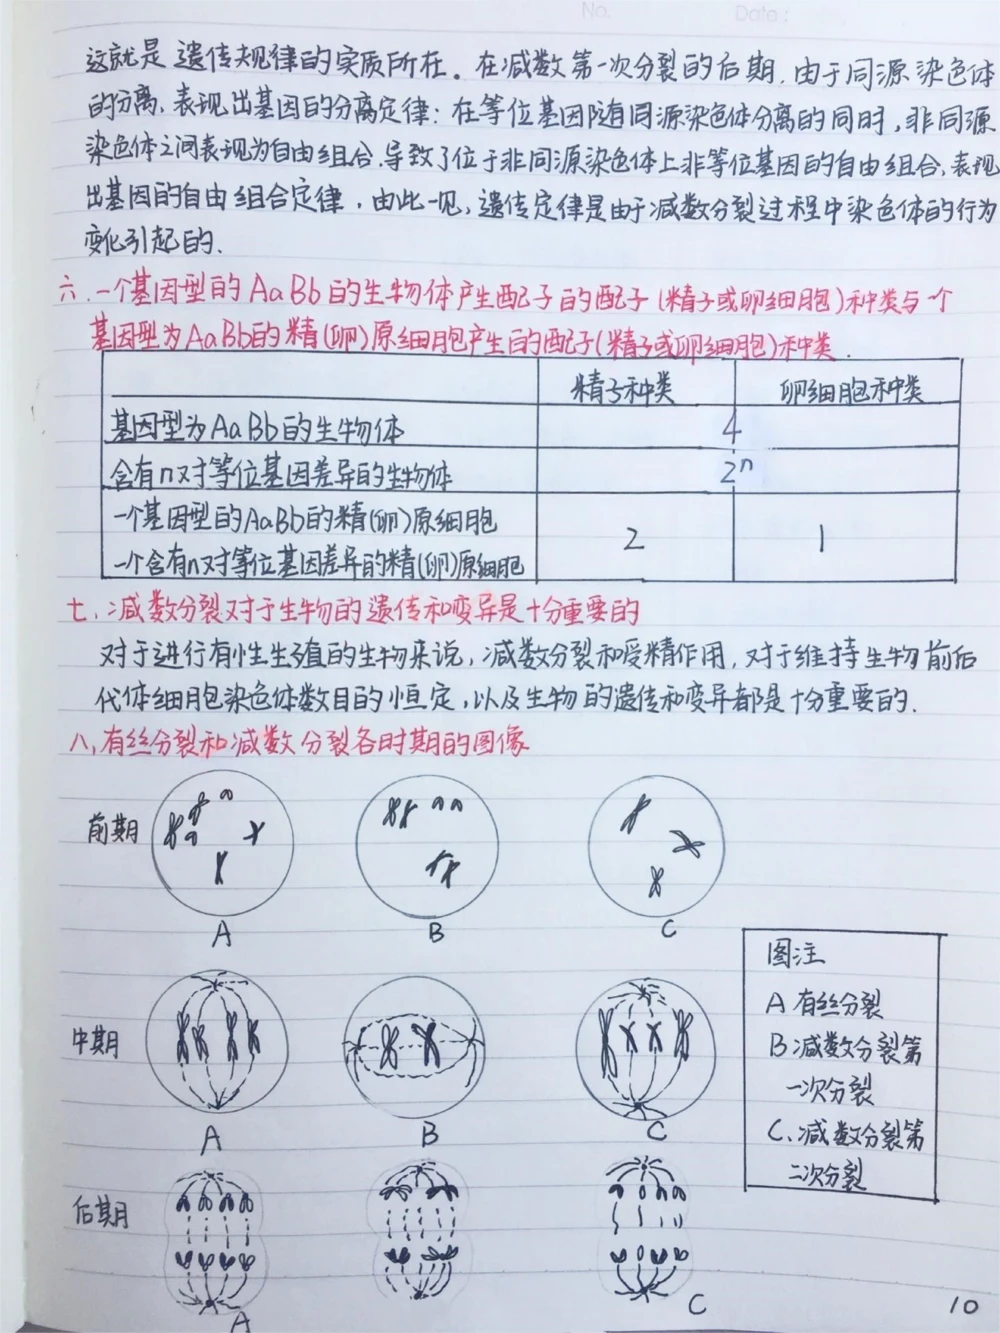 No.
Date:
这就是遗传规律的实质所在。在减数第一次分裂的后期,由于同源染色体
的分离,表现出基因的分离定律:在等位基因随同源染色体分离的同时,非同源
染色体之间表现为自由组合,导致了位于非同源染色体上非等位基因的自由组合,表现
出基因的自由组合定律,由此一见,遗传定律是由于减数分裂过程中染色体的行为
变化引起的.
六、一个基因型的AaBb的生物体产生配子的配子(精子或卵细胞)种类与一个
基因型为AaBb的精(卵)原细胞产生的配子(精子或卵细胞)种类.
精子种类 卵细胞种类
基因型为AaBb的生物体 4
含有n对等位基因差异的生物体 2ⁿ
一个基因型的AaBb的精(卵)原细胞
2 1
一个含有n对等位基因差异的精(卵)原细胞
七、减数分裂对于生物的遗传和变异是十分重要的
对于进行有性生殖的生物来说,减数分裂和受精作用,对于维持生物前后
代体细胞染色体数目的恒定,以及生物的遗传和变异都是十分重要的.
八、有丝分裂和减数分裂各时期的图像
前期
A B C
中期
A B C
图注
A 有丝分裂
B 减数分裂第
一次分裂
C、减数分裂第
二次分裂
后期
A C
10